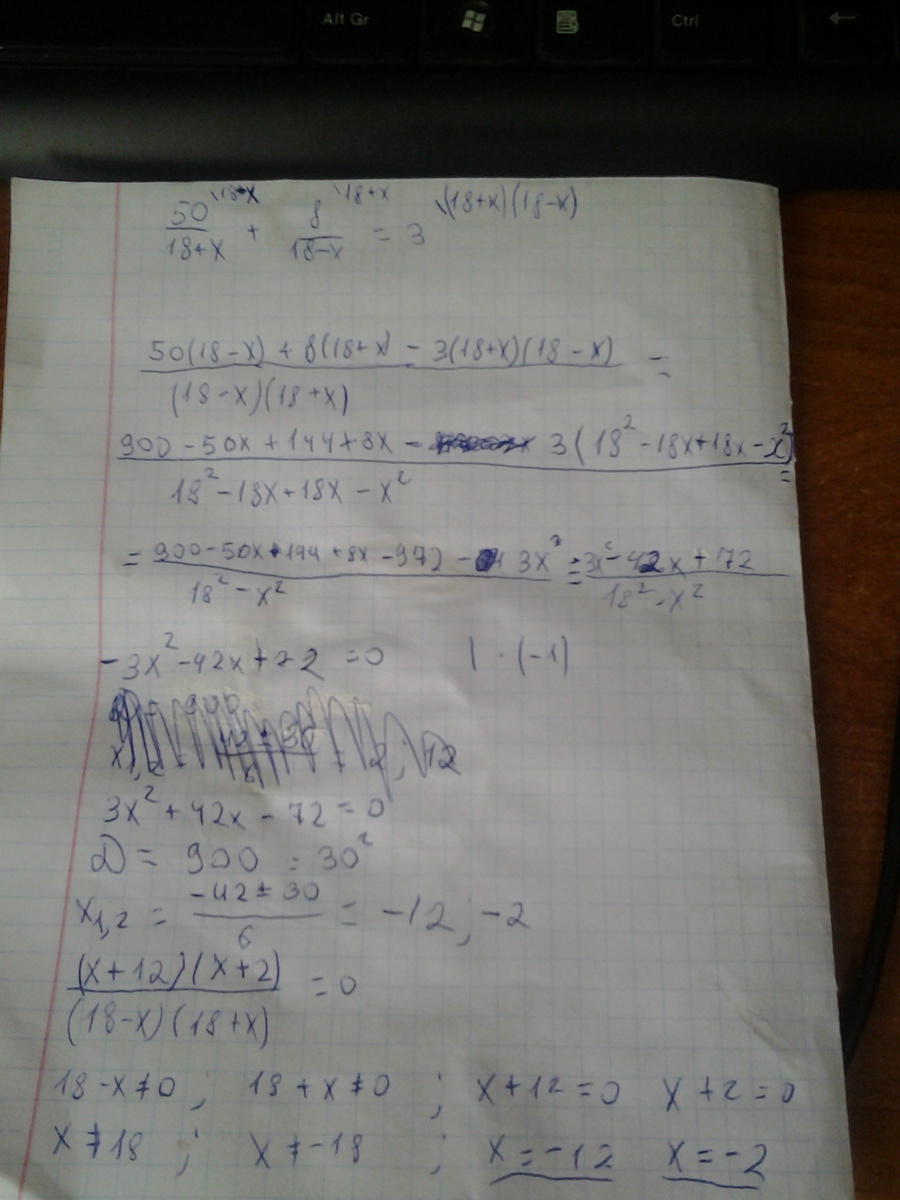 Alt Gr Ctrl ←
\18+x \18+x \(18+x)(18-x)
50/(18+x) + 8/(18-x) = 3
(50(18-x) + 8(18+x) - 3(18+x)(18-x))/((18-x)(18+x)) =
(900 - 50x + 144 + 8x - 3(18² - 18x + 18x - x²))/(18² - 18x + 18x - x²) =
= (900 - 50x + 144 + 8x - 972 - 3x²)/(18² - x²) = (3x² - 42x + 72)/(18² - x²)
-3x² - 42x + 72 = 0 | · (-1)
3x² + 42x - 72 = 0
D = 900 = 30²
x1,2 = (-42 ± 30)/6 = -12; -2
((x+12)(x+2))/((18-x)(18+x)) = 0
18-x ≠ 0 ; 18+x ≠ 0 ; x+12=0 x+2=0
x ≠ 18 ; x ≠ -18 ; x=-12 x=-2